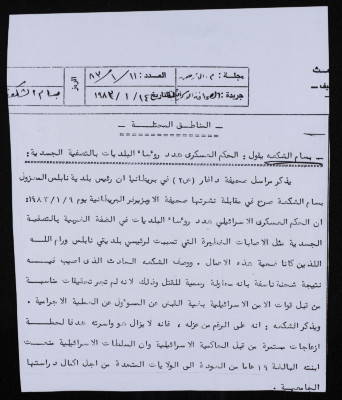 مجلة :
العدد : ٨٧/١/١١
الرمز
بسام الشكعة
جريدة :
التاريخ ١٩٨٣/١/١٤
المناطق المحتلة
_ بسام الشكعه يقول : الحكم العسكرى هدد رؤساء البلديات بالتصفية الجسدية :
يذكر مراسل صحيفة دافار (ص٢) في بريطانيا ان رئيس بلدية نابلس المعزول
بسام الشكعة صرح في مقابلة نشرتها صحيفة الاوبزيرفر البريطانية يوم ١٩٨٣/١/٩
ان الحكم العسكرى الاسرائيلي هدد رؤساء البلديات في الضفة الغربية بالتصفية
الجسدية مثل الاصابات الخطيرة التي تسببت لرئيسي بلديتي نابلس ورام الله
اللذين كانا ضحية هذه الاعمال . ووصف الشكعه الحادث الذى اصيب فيه
نتيجة شحنة ناسفة بانه محاولة رسمية للقتل وذلك لانه لم تجر تحقيقات مناسبة
من قبل قوات الامن الاسرائيلية بغية القبض عن المسؤول عن العملية الاجرامية .
ويذكر الشكعه : انه على الرغم من عزله ، فانه لا يزال هو واسرته هدفا لحملة
ازعاجات مستمرة من قبل الحاكمية الاسرائيلية وان السلطات الاسرائيلية منعت
ابنته البالغة ١٩ عاما من العودة الى الولايات المتحدة من اجل اكمال دراستها
الجامعية .